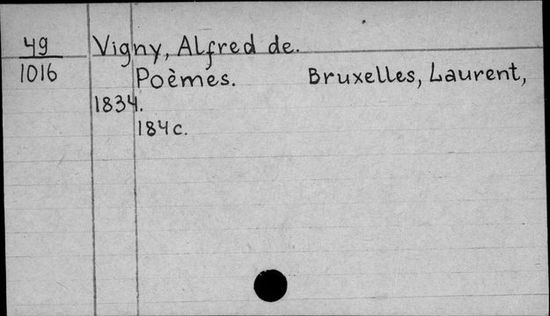 49 Vigny, Alfred de.
1016 Poèmes. Bruxelles, Laurent,
1834.
184 c.